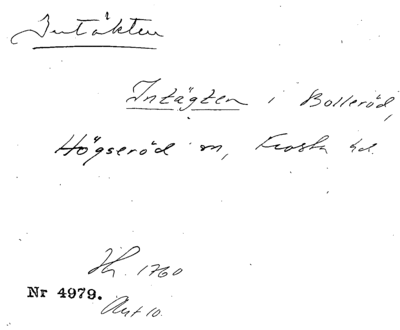 Intäkten
Intägten i Bolleröd,
Högseröd sn, Frosta hd.
Hf. 1760
Nr 4979.
Akt 10.